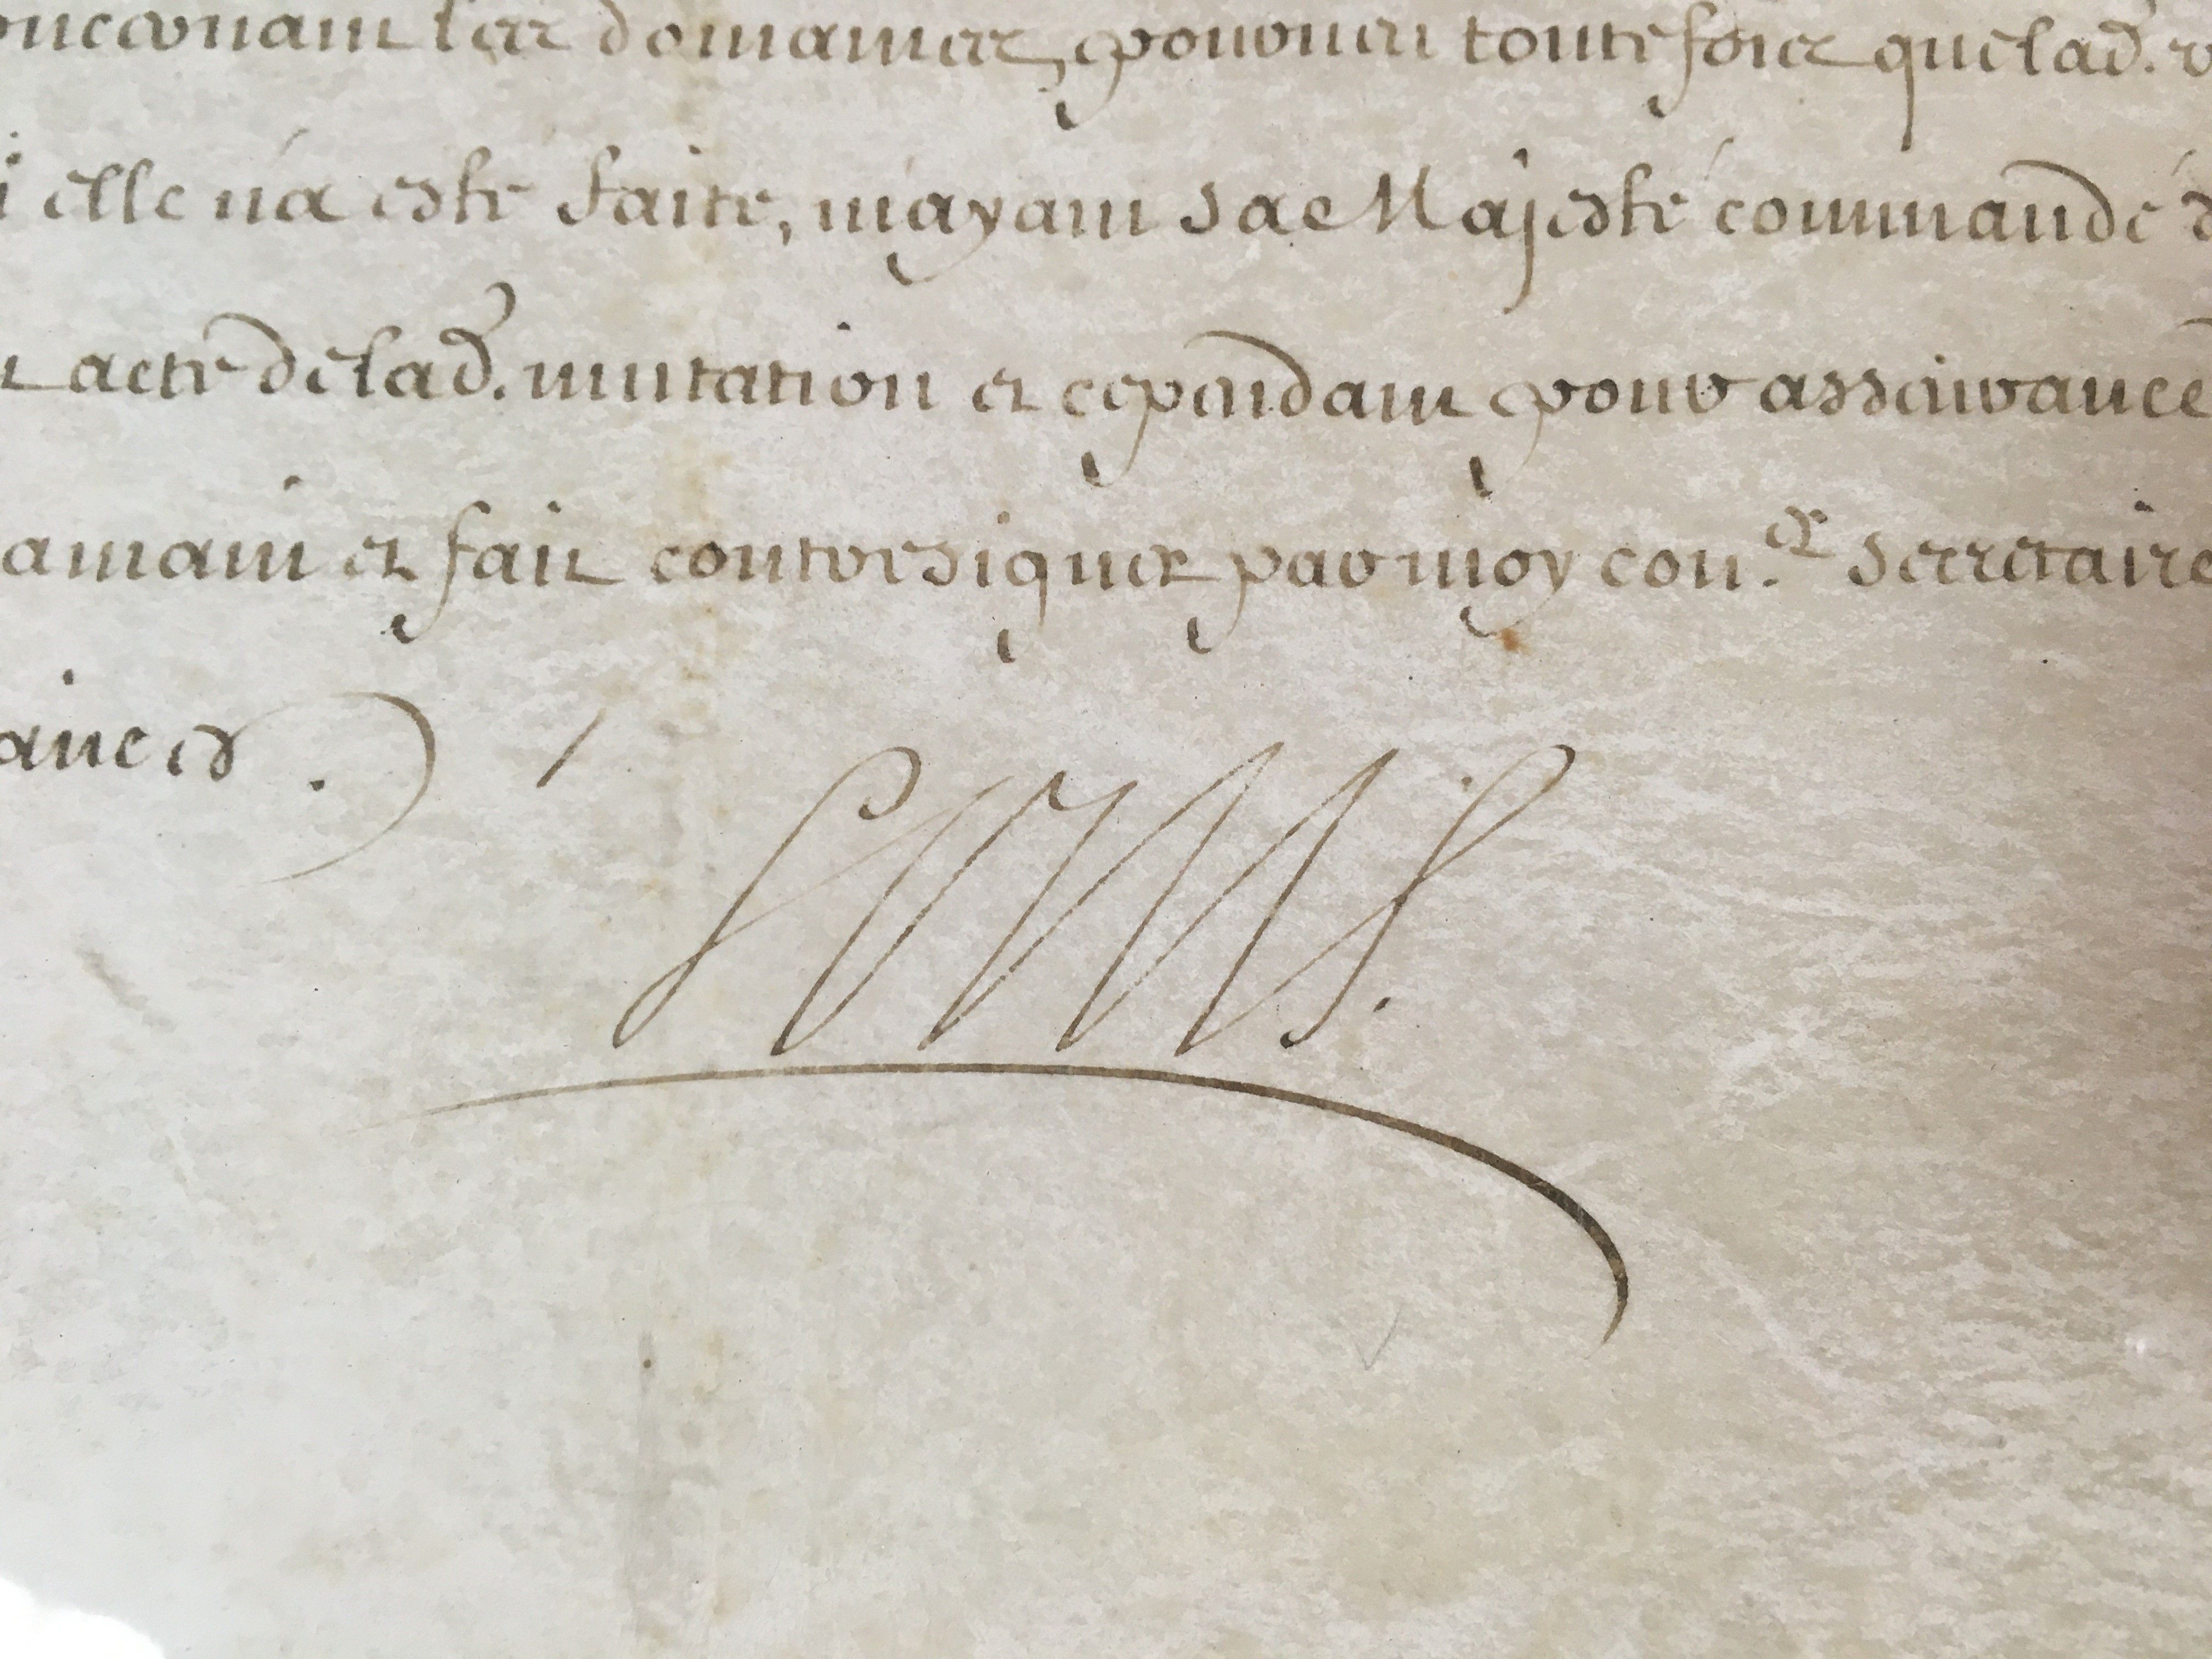 concernant les domaines, pourveu toutesfois que lad.
elle n'a esté faite, m'ayant sa Majesté commandé
acte de lad. mutation et cependant pour asseurance
sa main et fait contresigner par moy con.er secretaire
ances.
Louis.